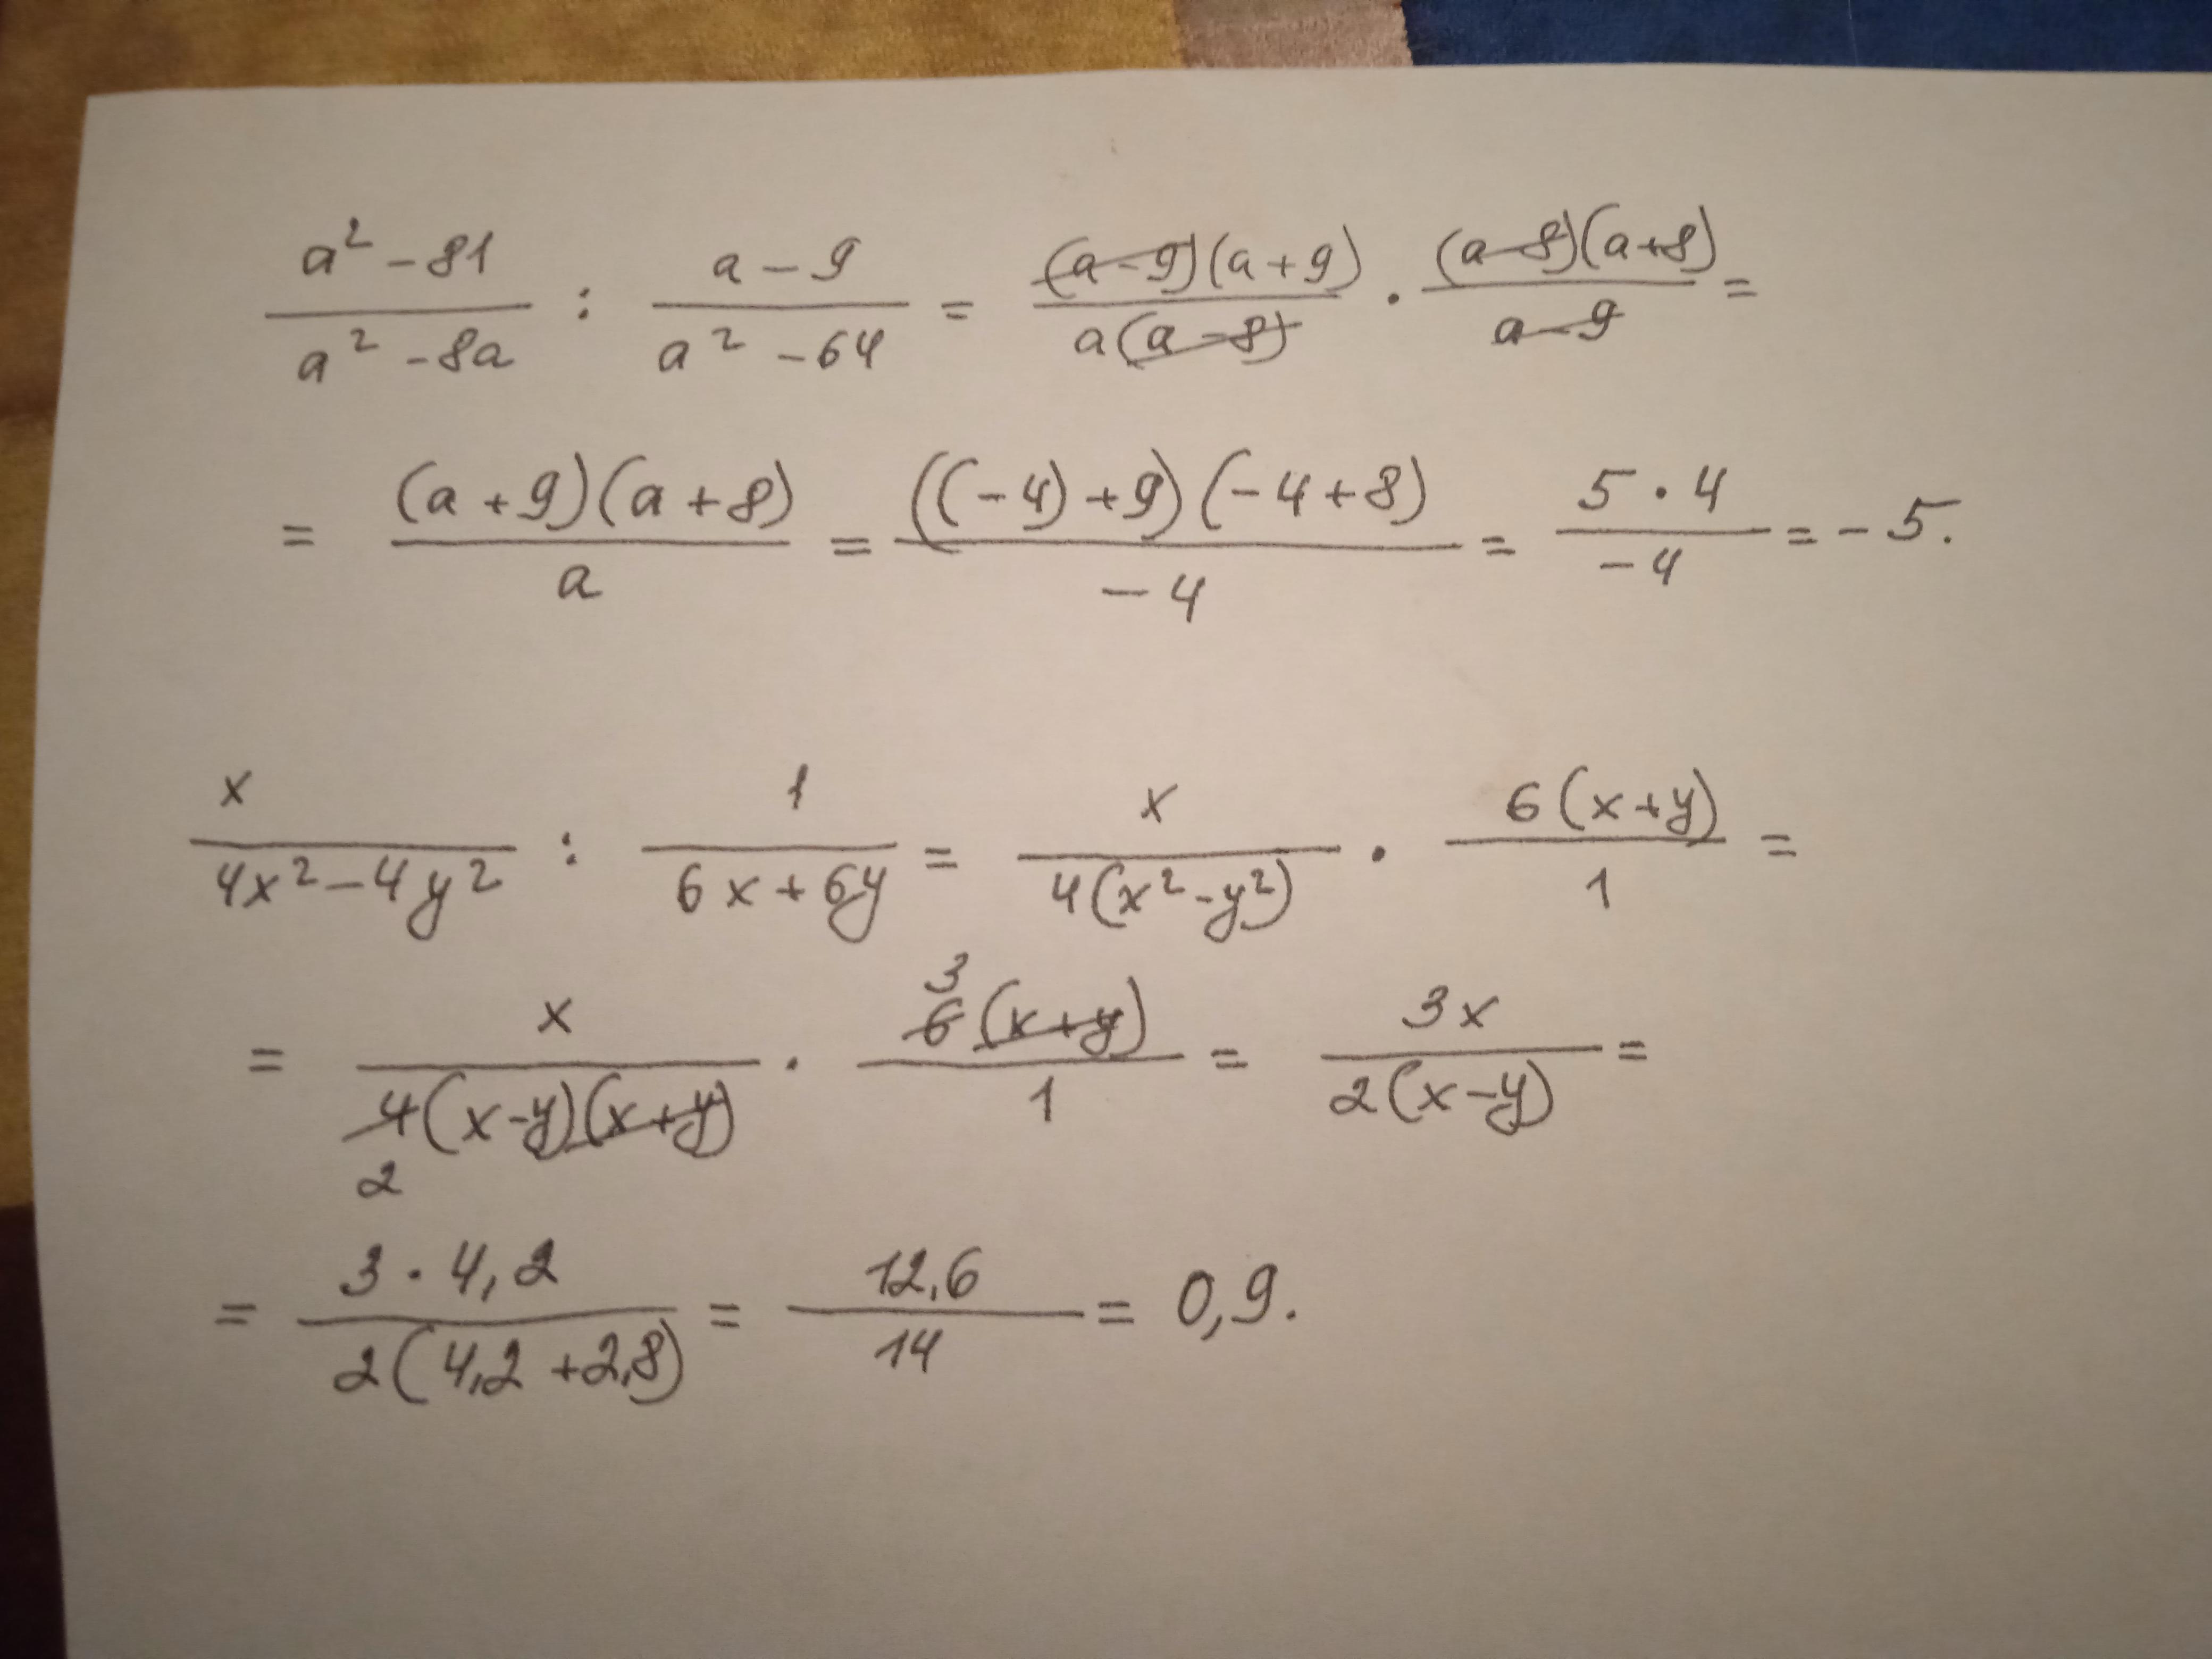 (a² - 81)/(a² - 8a) : (a - 9)/(a² - 64) = (a - 9)(a + 9)/a(a - 8) · (a - 8)(a + 8)/(a - 9) =
= (a + 9)(a + 8)/a = ((-4) + 9)(-4 + 8)/-4 = 5 · 4/-4 = -5.
x/(4x² - 4y²) : 1/(6x + 6y) = x/4(x² - y²) · 6(x + y)/1 =
= x/4(x - y)(x + y) 2 · 3 6(x + y)/1 = 3x/2(x - y) =
= 3 · 4,2/2(4,2 + 2,8) = 12,6/14 = 0,9.